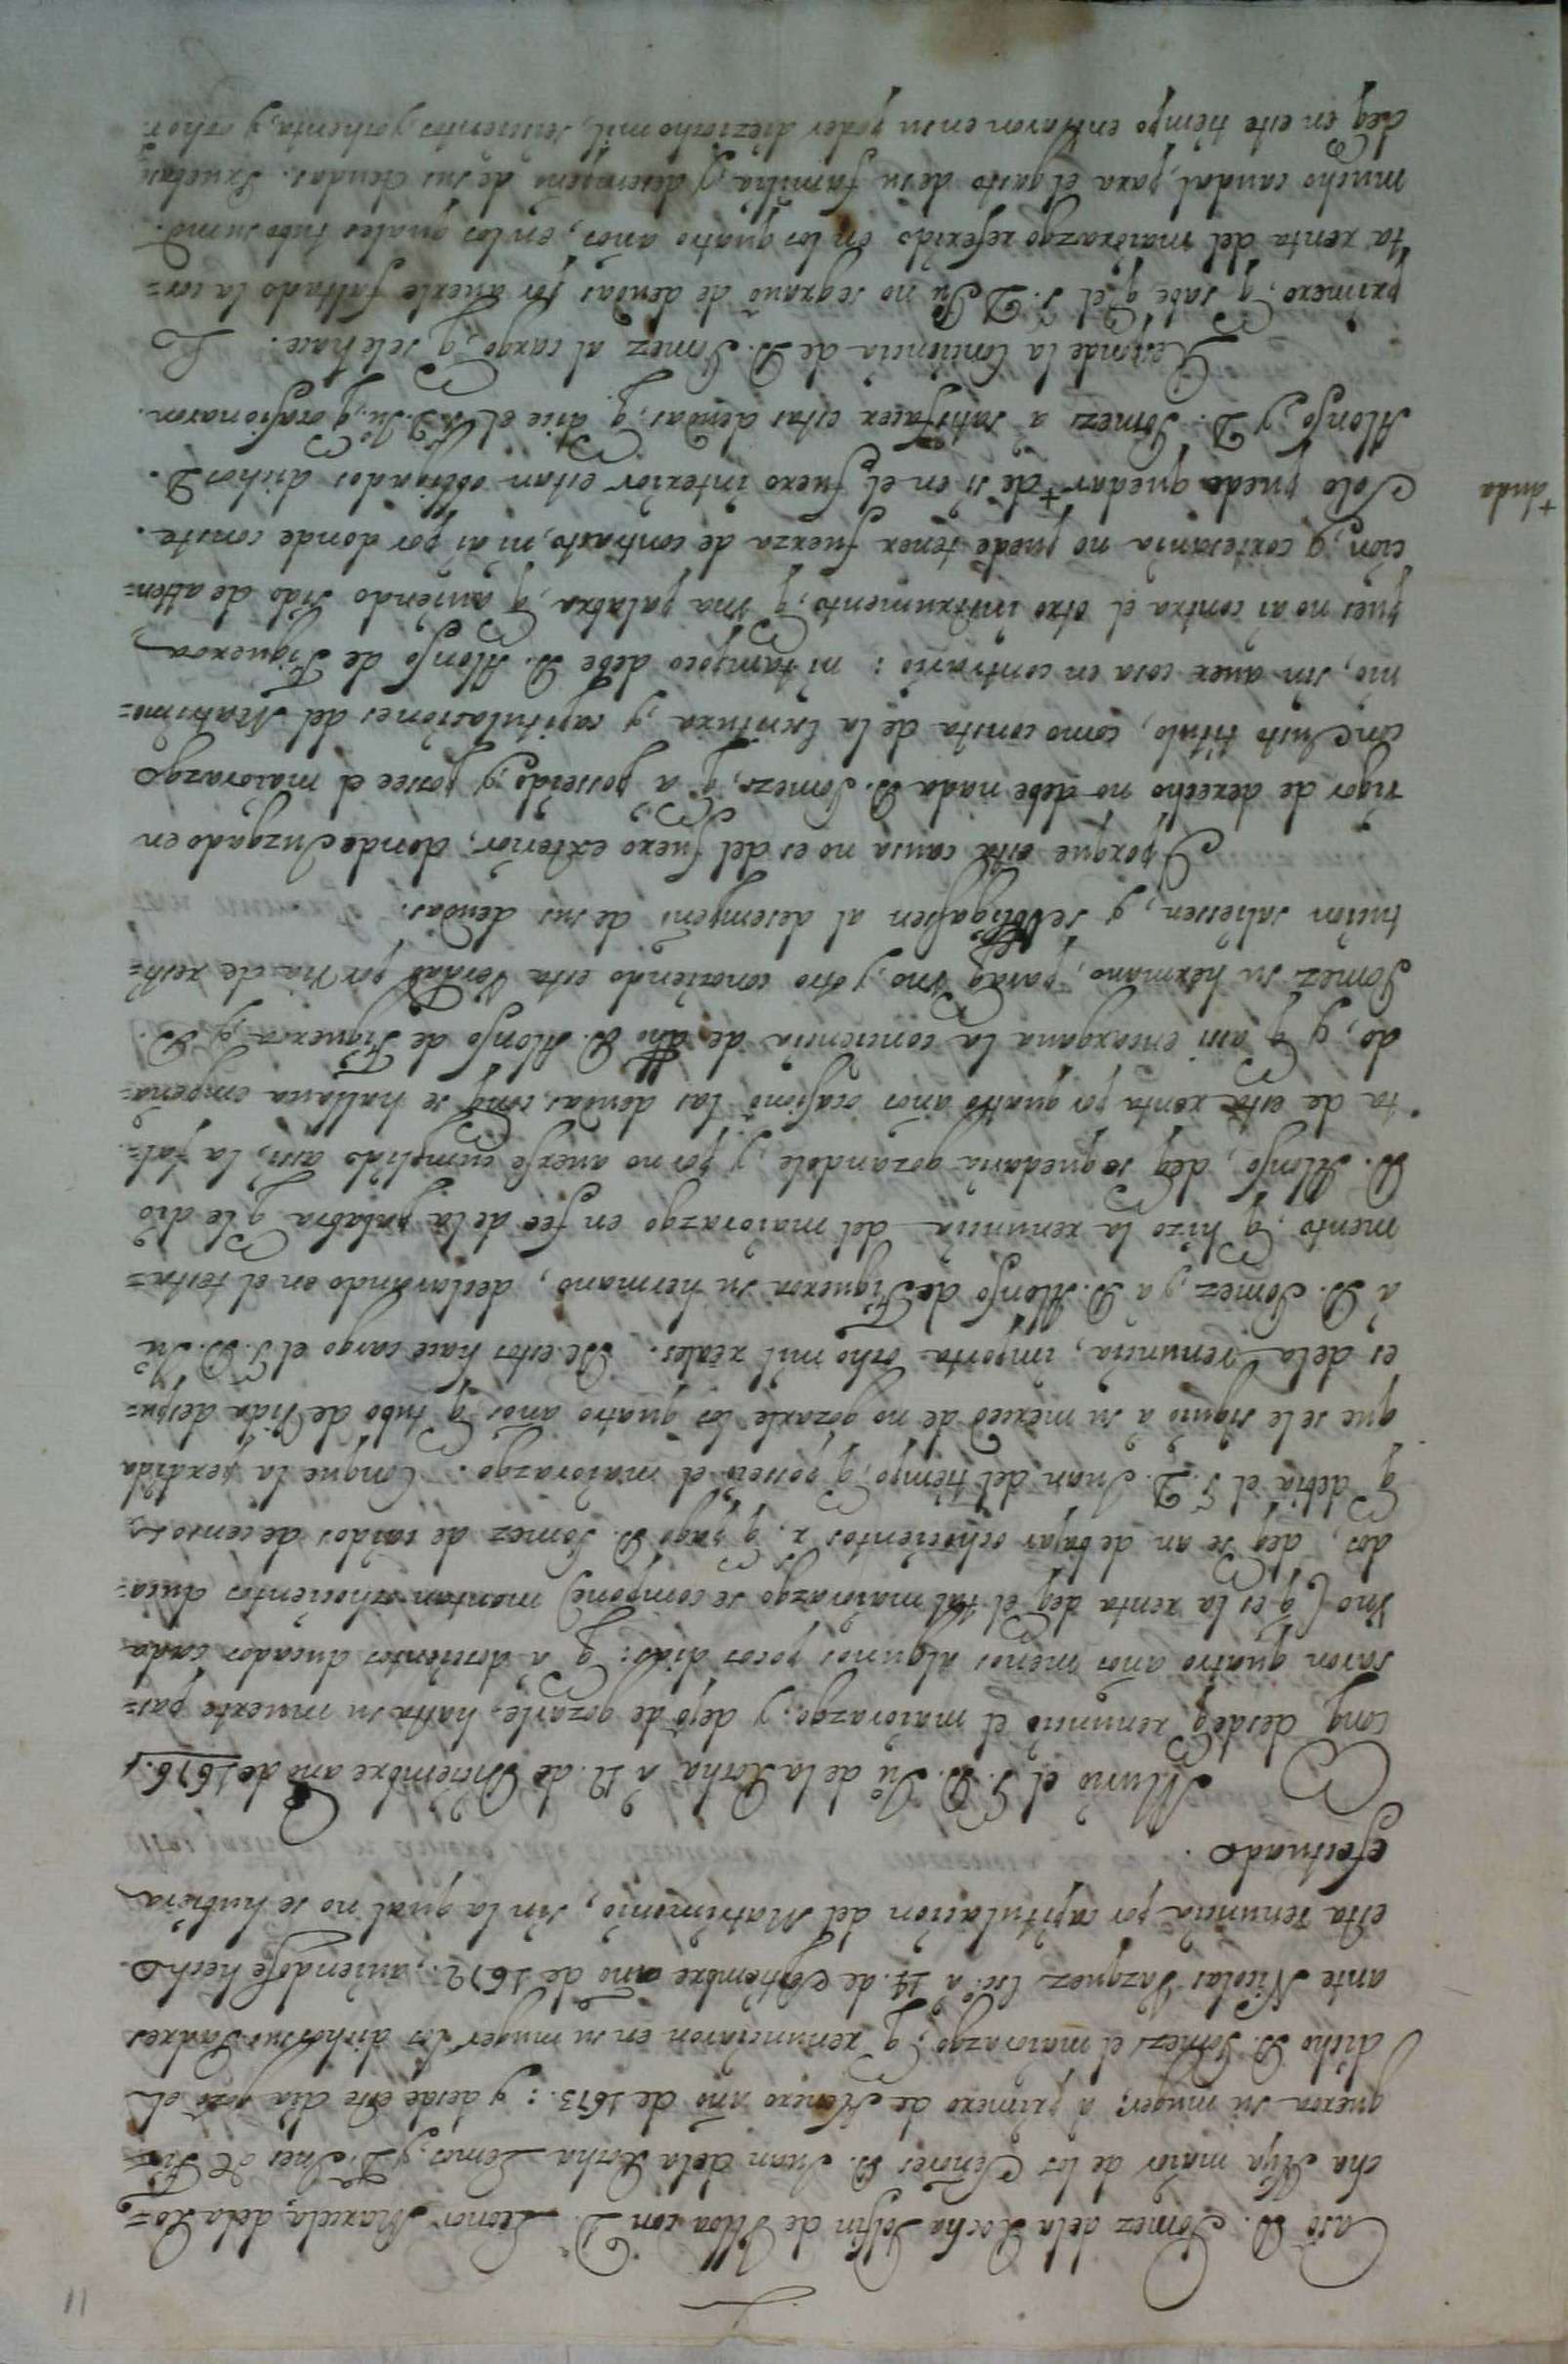 11
Casò D. Gomez dela Rocha Golfin de Ulloa con D.ª Leonor Maxiela dela Ro=
cha Hija maior de los Señores D. Juan dela Rocha Lemos, y D.ª Ines de Fi=
gueroa su muger; à primero de Henero año de 1673.: y desde este dia gozò el
dicho D. Gomez el maiorazgo, q̃ renunciaron en su muger los dichos sus Padres
ante Nicolas Vazquez Esc.º a 14. de Septiembre año de 1672., auiendose hecho
esta renuncia por capitulacion del Matrimonio, sin la qual no se hubiera
efectuado.
Murio el S. D. Juº de la Rocha à 12. de Diciembre año de 1676.,
conq̃ desdeq̃ renunciò el maiorazgo, y dejò de gozarle, hasta su muerte pas=
saron quatro años menos algunos pocos dias: q̃ à doscientos ducados cada
vno (q̃ es la renta deq̃ el tal maiorazgo se compone) montan ochocientos duca=
dos, deq̃ se an de bajar ochocientos r. q̃ pagò D. Gomez de caidos de censos
q̃ debia el S. D. Juan del tiempo, q̃ posseiò el maiorazgo. Conque la perdida
que sele siguiò à su merced de no gozarle los quatro años q̃ tubo de vida despu=
es dela renuncia, importa ocho mil reales. De estos hace cargo el S. D. Juº
à D. Gomez, y a D. Alonso de Figueroa su hermano, declarando en el testa=
mento, q̃ hizo la renuncia del maiorazgo en fee de la palabra q̃ le diò
D. Alonso, deq̃ se quedaria gozandole, y por no auerse cumplido assi, la fal=
ta de esta renta por quatro años ocasionò las deudas, conq̃ se hallaua empeña=
do, y q̃ assi encargaua la conciencia de dho D. Alonso de Figueroa, y D.
Gomez su hermano, paraq̃ vno, y otro conoziendo esta verdad por via de resti=
tucion saliessen, y se obligassen al desempeño de sus deudas.
Y porque esta causa no es del fuero exterior, donde Juzgado en
rigor de derecho no debe nada D. Gomez, q̃ a posseido, y possee el maiorazgo
con Justo titulo, como consta de la Escritura, y capitulaciones del Matrimo=
nio, sin auer cosa en contrario: ni tampoco debe D. Alonso de Figueroa
pues no ai contra el otro instrumento, q̃ vna palabra, q̃ auiendo sido de atten=
cion, y cortesania no puede tener fuerza de contrato, ni ai por donde conste.
Solo puede quedar + de si en el fuero interior estan obligados dichos D.
+ duda
Alonso, y D. Gomez a satisfacer estas deudas, q̃ dice el S. D. Juº, q̃ ocasionaron.
Responde la Conciencia de D. Gomez al cargo, q̃ sele hace. Lo
primero, q̃ sabe q̃ el S. D. Juº no se grauò de deudas por auerle faltado la cor=
ta renta del maiorazgo referido en los quatro años, en los quales tubo su md.
mucho caudal, para el gasto de su familia, y desempeño de sus deudas. Prueba
deq̃ en este tiempo entraron en su poder dieziocho mil, seiscientos, y ochenta, y ocho r.